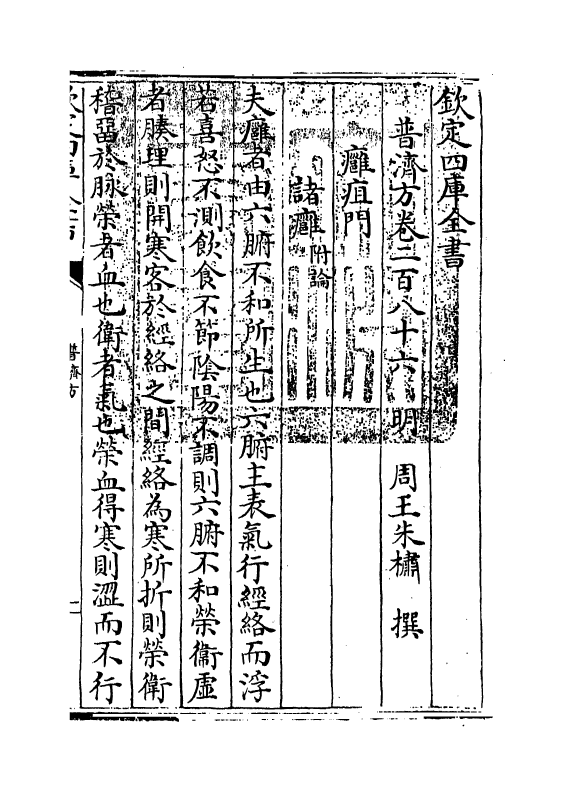 欽定四庫全書
普濟方卷二百八十六 明 周王朱橚 撰
癰疽門
諸癰附論
夫癰者由六腑不和所生也六腑主表氣行經絡而浮
若喜怒不測飲食不節陰陽不調則六腑不和榮衞虛
者腠理則開寒客於經絡之間經絡為寒所折則榮衛
稽留於脉榮者血也衛者氣也榮血得寒則澀而不行
普濟方